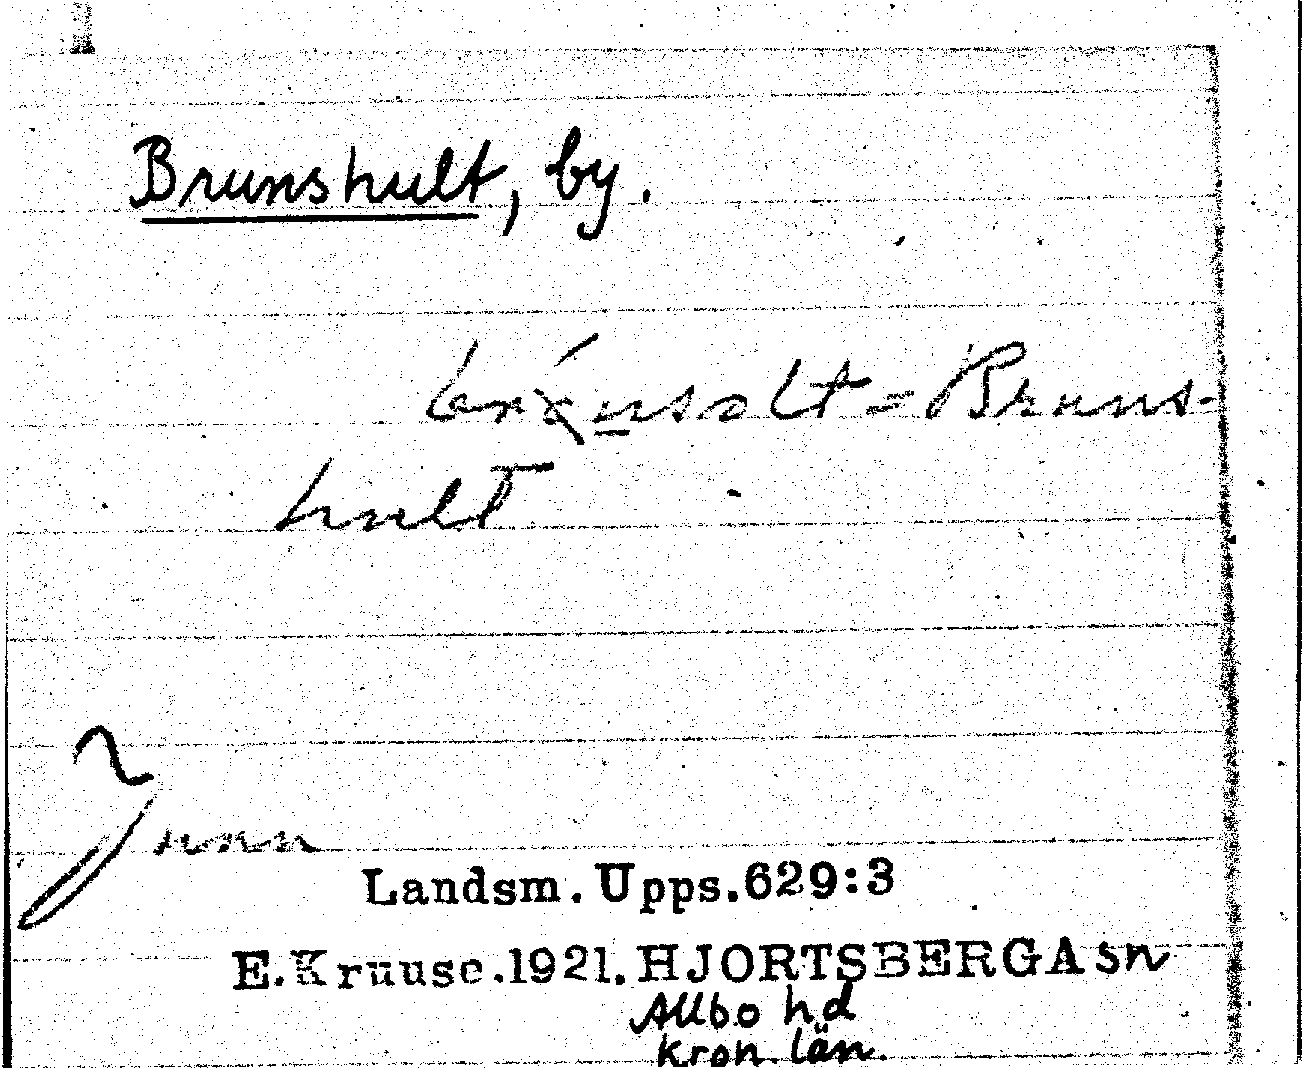 Brunshult, by.
= Bruns-
hult
Landsm. Upps. 629:3
E. Kruuse. 1921. HJORTSBERGA sn
Allbo hd
Kron. län.